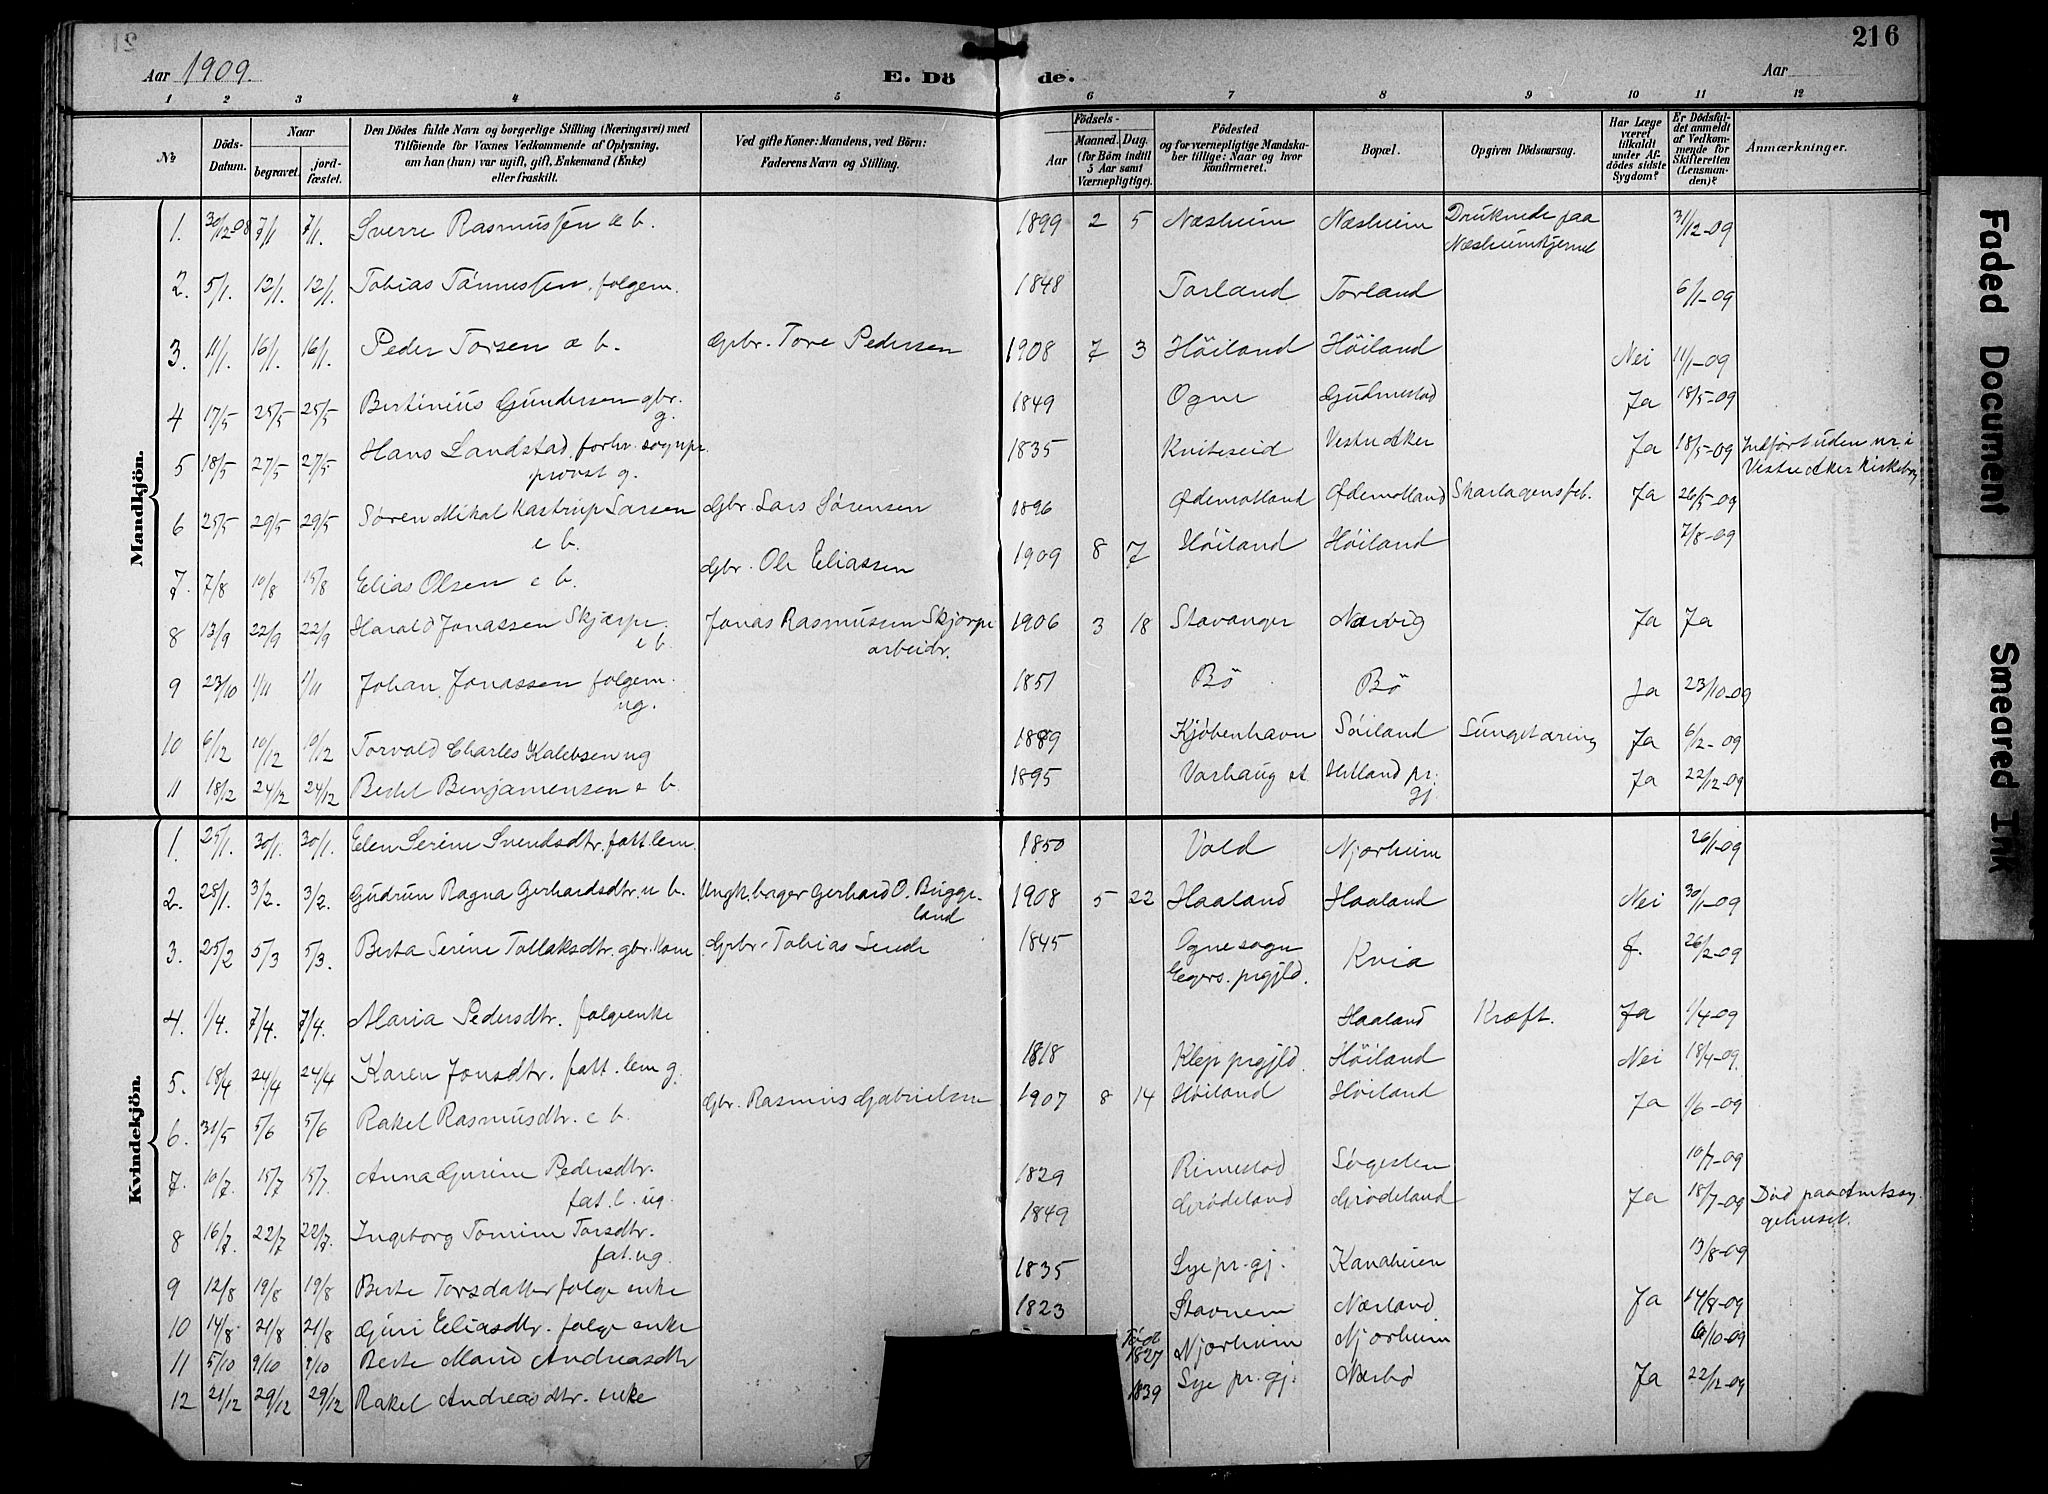 216
Aar 1909.
E. Dö de.
Aar
1 2 3 4 5 6 7 8 9 10 11 12
No
Döds-Datum.
Naar
begravet.
jord-fæstet.
Den Dödes fulde Navn og borgerlige Stilling (Næringsvei) med
Tilföiende for Voxnes Vedkommende af Oplysning,
om han (hun) var ugift, gift, Enkemand (Enke)
eller fraskilt.
Ved gifte Koner: Mandens, ved Börn:
Faderens Navn og Stilling.
Födsels-
Aar
Maaned. Dag.
(for Börn indtil
5 Aar samt
Værnepligtige).
Födested
og for værnepligtige Mandska-
ber tillige: Naar og hvor
konfirmeret.
Bopæl.
Opgiven Dödsaarsag.
Har Læge
været
tilkaldt
under Af-
dödes sidste
Sygdom?
Er Dödsfal-
det anmeldt
af Vedkom-
mende for
Skifteretten
(Lensman-
den)?
Anmærkninger.
Mandkjön.
1. 30/12-08 7/1 7/1. Sverre Rasmussen e b. 1899 2 5 Næsheim Næsheim Druknede paa 31/12-09
Næsheimskjernet
2. 5/1. 12/1. 12/1. Tobias Tönnessen, folgem. 1848 Torland Torland 6/1-09
3. 11/1. 16/1. 16/1. Peder Torsen e b. Gbr. Tore Pedersen 1908 7 3 Höiland Höiland Nei 11/1-09
4 17/5 25/5 25/5 Bertinius Gundersen gbr. 1849 Ogne Gudmestad Ja 18/5-09
g.
5 18/5 27/5 27/5 Hans Landstad, forhv. sognepr. 1835 Kviteseid Vestre Aker Ja 18/5-09 Indført uden nr. i
provst g. Vestre Aker kirkebog
6 25/5 29/5 29/5 Søren Mikal Kastrup Larsen Gbr. Lars Sørensen 1896 Ødemotland Ødemotland Skarlagensfeb. Ja 26/5-09
e b.
7. 7/8 10/8 15/8 Elias Olsen e b. Gbr. Ole Eliassen 1909 8 7 Höiland Höiland 7/8-09
8 13/9 22/9 22/9 Harald Jonassen Skjærpe. Jonas Rasmussen Skjærpe 1906 3 18 Stavanger Nærvig Ja Ja
e b. arbeidr.
9 23/10 1/11 1/11 Johan Jonassen folgem. 1851 Bö Bö Ja 23/10-09
ug.
10 6/12 10/12 19/12 Torvald Charles Kalebsen ug 1889 Kjøbenhavn Söiland Lungetæring Ja 6/12-09
11 18/12 24/12 24/12 Bertel Benjamensen e b. 1895 Varhaug st. Hetland pr. Ja 22/12-09
gj.
Kvindekjön.
1. 25/1. 30/1. 30/1. Elen Serine Svendsdtr. fatt. lem. 1850 Vold Njærheim 26/1-09
2. 28/1. 3/2. 3/2. Gudrun Ragna Gerhardsdtr. u b. Ungk. bager Gerhard O. Bugge- 1908 5 22 Haaland Haaland Nei 30/1-09
land
3. 25/2 5/3 5/3. Berta Serine Tollaksdtr. gbr. kone Gbr. Tobias Lende 1845 Ogne sogn Kvia J. 26/2-09
Egers. prgjld.
4. 1/4. 7/4. 7/4. Maria Pedersdtr. folgeenke Haaland Kræft. Ja 1/4-09
5. 18/4 24/4 24/4 Karen Jonsdtr. fatt. lem g. 1818 Klep prgjld. Höiland Nei 18/4-09.
6. 31/5 5/6 5/6 Rakel Rasmusdtr. e b. Gbr. Rasmus Gabrielsen 1907 8 14 Höiland Höiland Ja 1/6-09
7. 10/7. 15/7 15/7. Anna Gurine Pedersdtr. 1829 Rimestad Søgesten 10/7-09
fat. l. ug.
8 16/7. 22/7 22/7. Ingeborg Tomine Torsdtr. 1849 Grödeland Grödeland Ja 18/7-09 Död paa Amtssy-
fat. ug. gehuset.
9 12/8 19/8 19/8 Berte Torsdatter folge enke 1835 Lye pr. gj. Kanaheien 13/8-09
10 14/8 21/8 21/8 Guri Eliasdtr. folge enke 1823 Stavnem Nærland Ja 14/8-09
11 5/10 9/10 9/10 Berte Marie Andreasdtr Födt 1827 Njærheim Njærheim 6/10-09
12 21/12 29/12 29/12 Rakel Andreasdtr. enke 1839 Lye pr. gj. Nærbö Ja 22/12-09
Faded Document
Smeared Ink